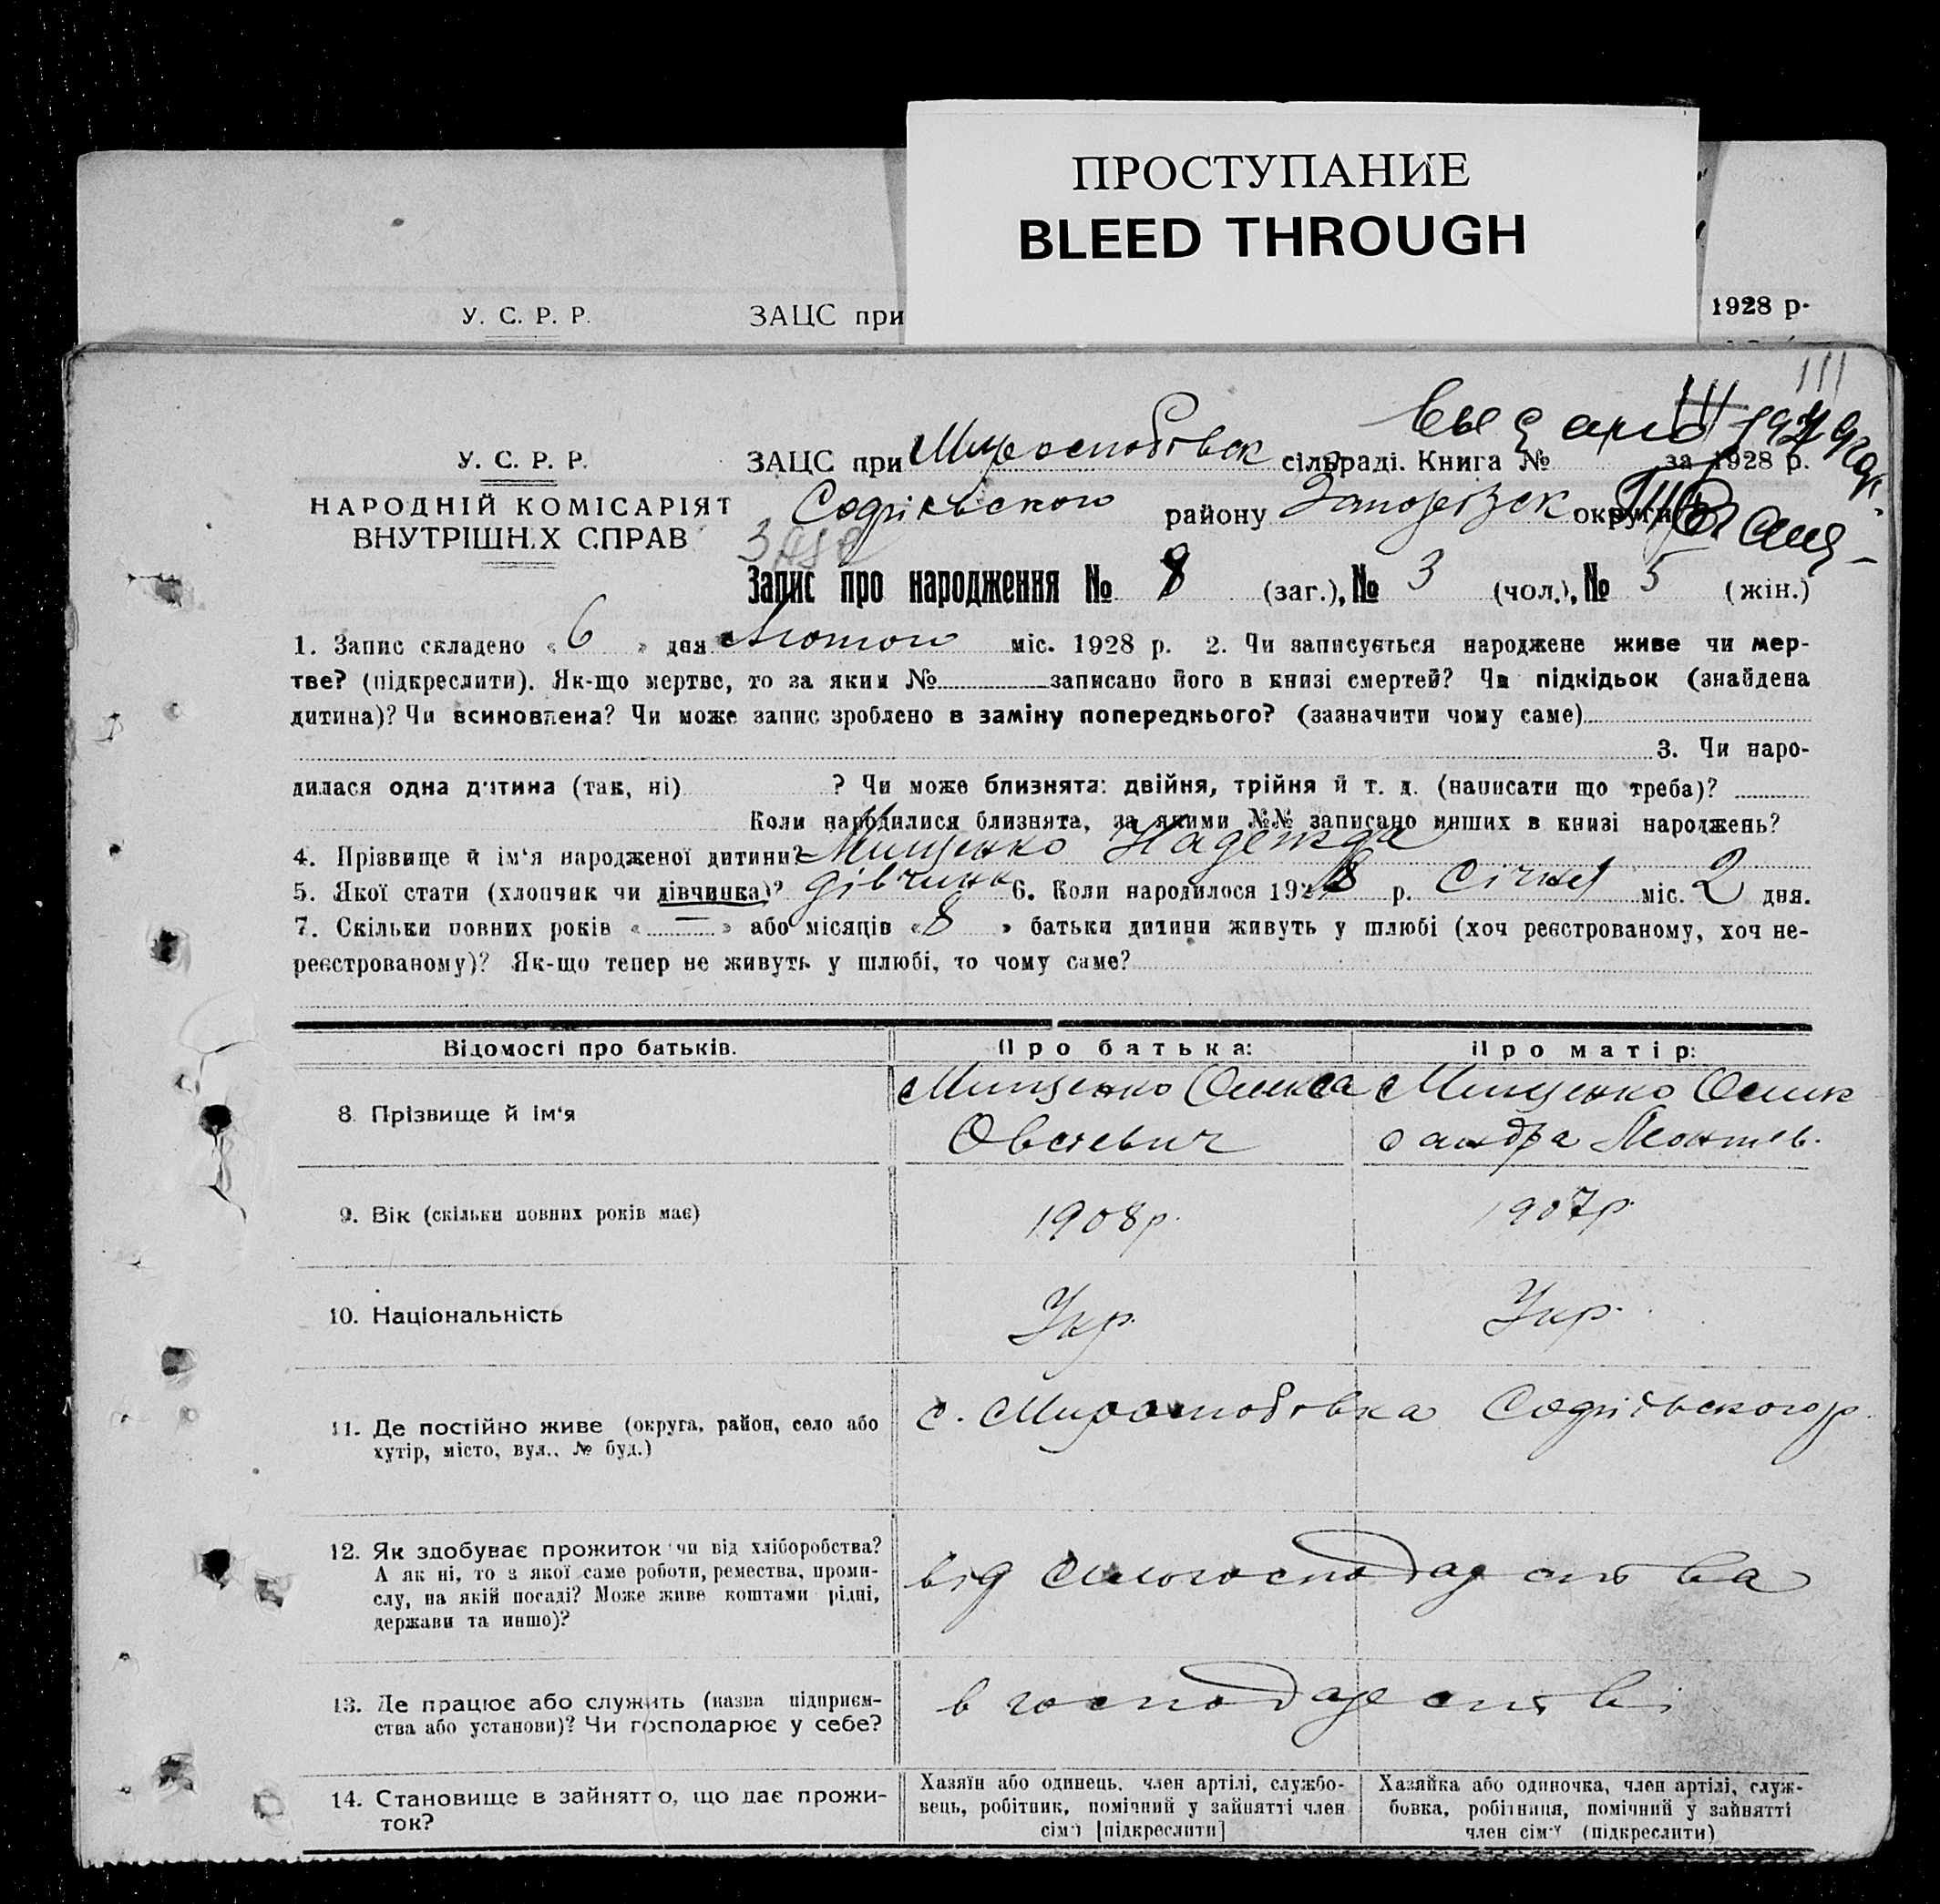 ПРОСТУПАНИЕ
BLEED THROUGH
У. С. Р. Р. ЗАЦС при 1928 р.
III
У. С. Р. Р. ЗАЦС при сільраді. Книга № за 1928 р.
НАРОДНІЙ КОМІСАРІЯТ
ВНУТРІШНІХ СПРАВ
району округи
Запис про народження № 8 (заг.), № 3 (чол.), № 5 (жін.)
1. Запис складено « 6 » дня Лютого міс. 1928 р. 2. Чи записується народжене живе чи мер-
тве? (підкреслити). Як-що мертве, то за яким № записано його в книзі смертей? Чи підкідьок (знайдена
дитина)? Чи всиновлена? Чи може запис зроблено в заміну попереднього? (зазначити чому саме)
3. Чи наро-
дилася одна дитина (так, ні) ? Чи може близнята: двійня, трійня й т. д. (написати що треба)?
Коли народилися близнята, за якими №№ записано инших в книзі народжень?
4. Прізвище й ім'я народженої дитини? Мищенко Надежда
5. Якої стати (хлопчик чи дівчинка)? дівчина 6. Коли народилося 1928 р. Січня міс. 2 дня.
7. Скільки повних років « — » або місяців « 8 » батьки дитини живуть у шлюбі (хоч реєстрованому, хоч не-
реєстрованому)? Як-що тепер не живуть у шлюбі, то чому саме?
Відомості про батьків. Про батька: Про матір:
8. Прізвище й ім'я Мищенко Олекса Мищенко Олик
сандра
9. Вік (скільки повних років має) 1908р. 1907р.
10. Національність Укр. Укр.
11. Де постійно живе (округа, район, село або
хутір, місто, вул., № буд.)
12. Як здобуває прожиток чи від хліборобства?
А як ні, то з якої саме роботи, ремества, проми-
слу, на якій посаді? Може живе коштами рідні,
держави та иншо)?
від
13. Де працює або служить (назва підприєм-
ства або установи)? Чи господарює у себе?
в господарстві
14. Становище в зайнятто, що дає прожи-
ток?
Хазяїн або одинець, член артілі, службо-
вець, робітник, помічний у зайнятті член
сім'ї [підкреслити]
Хазяйка або одиночка, член артілі, служ-
бовка, робітниця, помічний у зайнятті
член сім'ї (підкреслити)